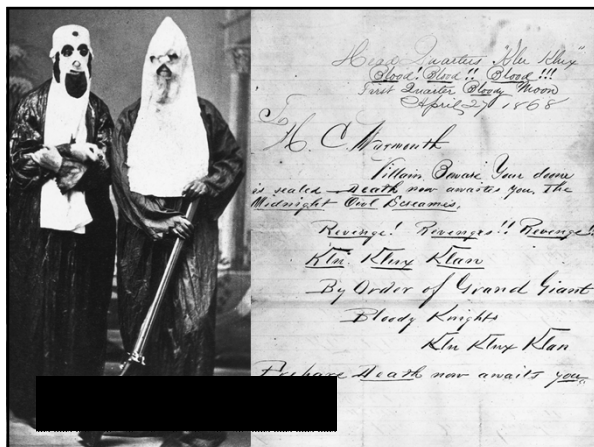 Head Quarters "Klu Klux"
Blood! Blood!! Blood!!!
First Quarter Bloody Moon
April 27 1868
To
H. C. Warmouth
Villain, Beware Your doom
is sealed Death now awaits you. The
Midnight Owl Screams.
Revenge! Revenge!! Revenge!!
Klu. Klux Klan
By Order of Grand Giant
Bloody Knights
Klu Klux Klan
Prepare Death now awaits you.